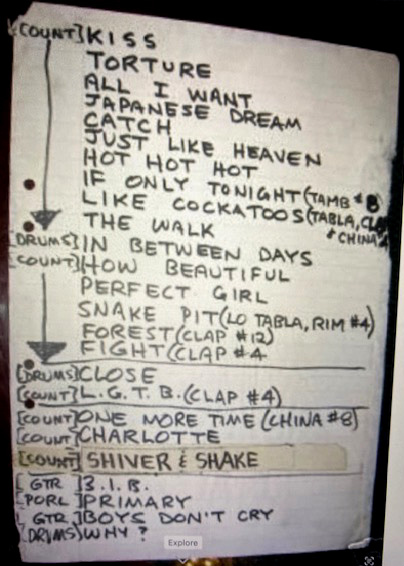 [COUNT] KISS
TORTURE
ALL I WANT
JAPANESE DREAM
CATCH
JUST LIKE HEAVEN
HOT HOT HOT
IF ONLY TONIGHT (TAMB # 8
LIKE COCKATOOS (TABLA, CLAP
THE WALK + CHINA
[DRUMS] IN BETWEEN DAYS
[COUNT] HOW BEAUTIFUL
PERFECT GIRL
SNAKE PIT (LO TABLA, RIM #4)
FOREST (CLAP #12)
FIGHT (CLAP #4
[DRUMS] CLOSE
[COUNT] L.G.T.B. (CLAP #4)
[COUNT] ONE MORE TIME (CHINA #8)
[COUNT] CHARLOTTE
[COUNT] SHIVER & SHAKE
[GTR] 3.I.B.
[PORL] PRIMARY
GTR ] BOYS DON'T CRY
[DRUMS] WHY?
Explore